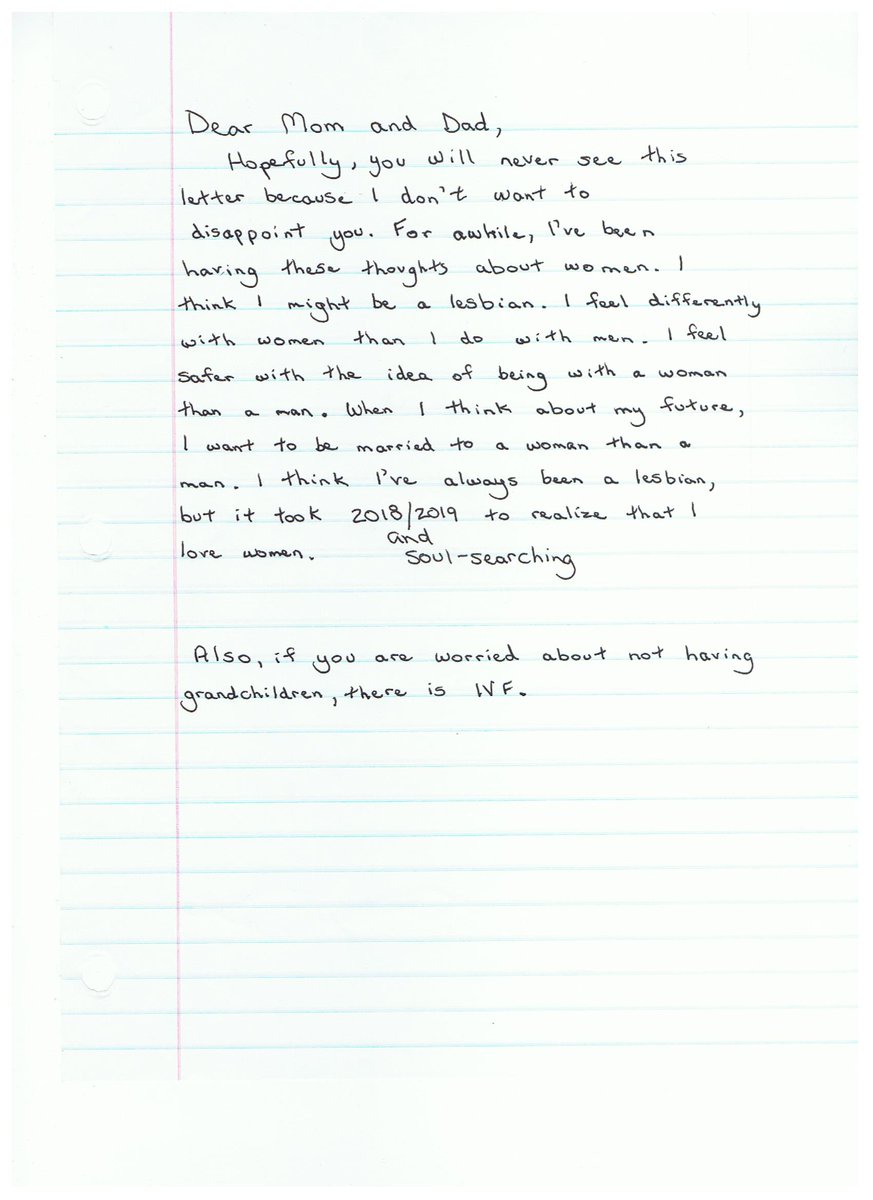 Dear Mom and Dad,
Hopefully, you will never see this
letter because I don't want to
disappoint you. For awhile, I've been
having these thoughts about women. I
think I might be a lesbian. I feel differently
with women than I do with men. I feel
safer with the idea of being with a woman
than a man. When I think about my future,
I want to be married to a woman than a
man. I think I've always been a lesbian,
but it took 2018/2019 to realize that I
and
love women. soul-searching
Also, if you are worried about not having
grandchildren, there is IVF.